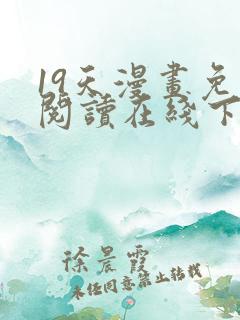 19天漫畫免
閱讀在綫下
徐晨霞
未經同意禁止轉載